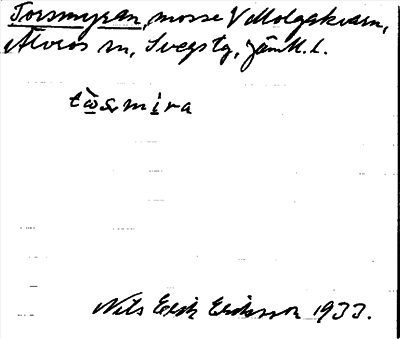 Torsmyran, mosse V Molgakvarn,
Älvros sn, Svegs tg, Jämtl. l.
tɷ̀s̩mira
Nils Erik Eriksson 1933.